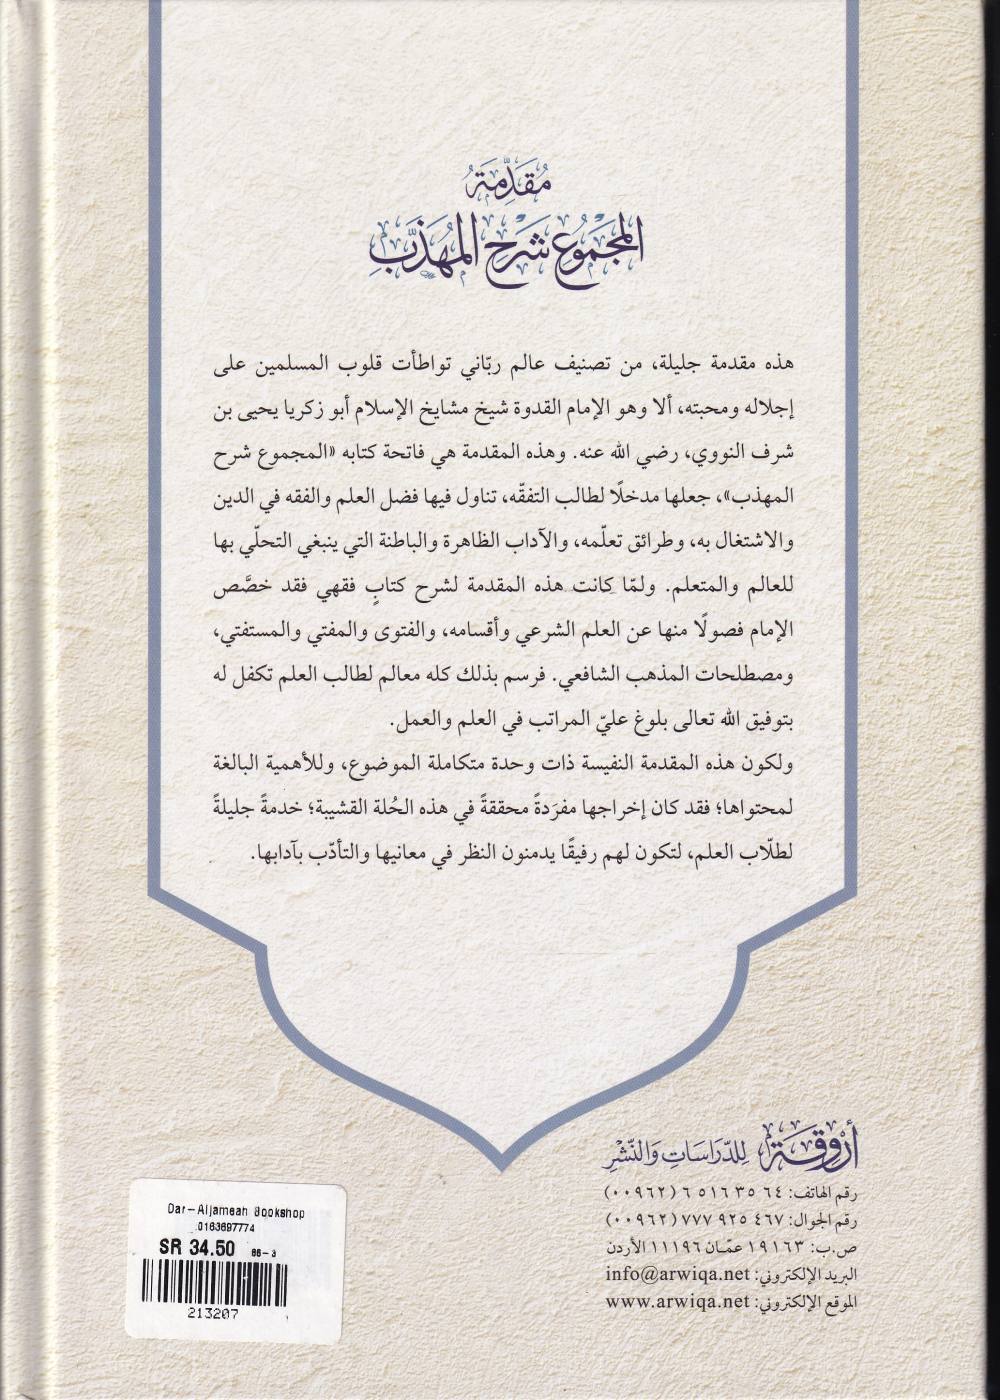 مُقَدِّمَةُ
المَجْمُوعِ شَرْحِ المُهَذَّبِ
هذه مقدمة جليلة، من تصنيف عالم ربّاني تواطأت قلوب المسلمين على
إجلاله ومحبته، ألا وهو الإمام القدوة شيخ مشايخ الإسلام أبو زكريا يحيى بن
شرف النووي، رضي الله عنه. وهذه المقدمة هي فاتحة كتابه «المجموع شرح
المهذب»، جعلها مدخلًا لطالب التفقّه، تناول فيها فضل العلم والفقه في الدين
والاشتغال به، وطرائق تعلّمه، والآداب الظاهرة والباطنة التي ينبغي التحلّي بها
للعالم والمتعلم. ولمّا كانت هذه المقدمة لشرح كتابٍ فقهي فقد خصَّص
الإمام فصولًا منها عن العلم الشرعي وأقسامه، والفتوى والمفتي والمستفتي،
ومصطلحات المذهب الشافعي. فرسم بذلك كله معالم لطالب العلم تكفل له
بتوفيق الله تعالى بلوغ عليّ المراتب في العلم والعمل.
ولكون هذه المقدمة النفيسة ذات وحدة متكاملة الموضوع، وللأهمية البالغة
لمحتواها؛ فقد كان إخراجها مفرَدةً محققةً في هذه الحُلة القشيبة؛ خدمةً جليلةً
لطلّاب العلم، لتكون لهم رفيقًا يدمنون النظر في معانيها والتأدّب بآدابها.
أروقة للدِّرَاسَاتِ وَالنَّشْرِ
رقم الهاتف: ٦٤ ٣٥ ٥١٦ ٦ (٠٠٩٦٢)
رقم الجوال: ٤٦٧ ٩٢٥ ٧٧٧ (٠٠٩٦٢)
ص.ب: ١٩١٦٣ عمّان ١١١٩٦ الأردن
البريد الإلكتروني: info@arwiqa.net
الموقع الإلكتروني: www.arwiqa.net
Dar-Aljameah Bookshop
0163697774
SR 34.50 66-3
213207